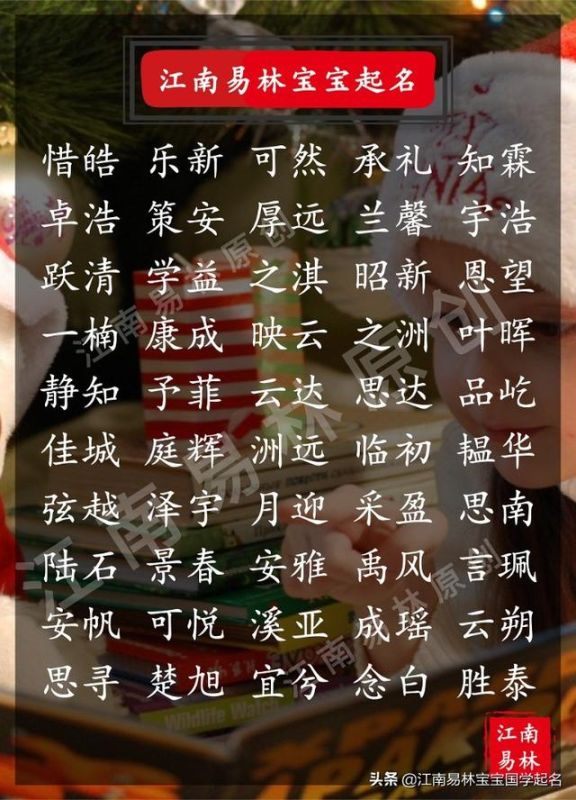 江南易林宝宝起名
惜皓 乐新 可然 承礼 知霖
卓浩 策安 厚远 兰馨 宇浩
跃清 学益 之淇 昭新 恩望
一楠 康成 映云 之洲 叶晖
静知 予菲 云达 思达 品屹
佳城 庭辉 洲远 临初 韫华
弦越 泽宇 月迎 采盈 思南
陆石 景春 安雅 禹风 言珮
安帆 可悦 溪亚 成瑶 云朔
思寻 楚旭 宜兮 念白 胜泰
江南易林原创
江南易林原创
江南易林原创
Wildlife Watch
江南
易林
头条 @江南易林宝宝国学起名